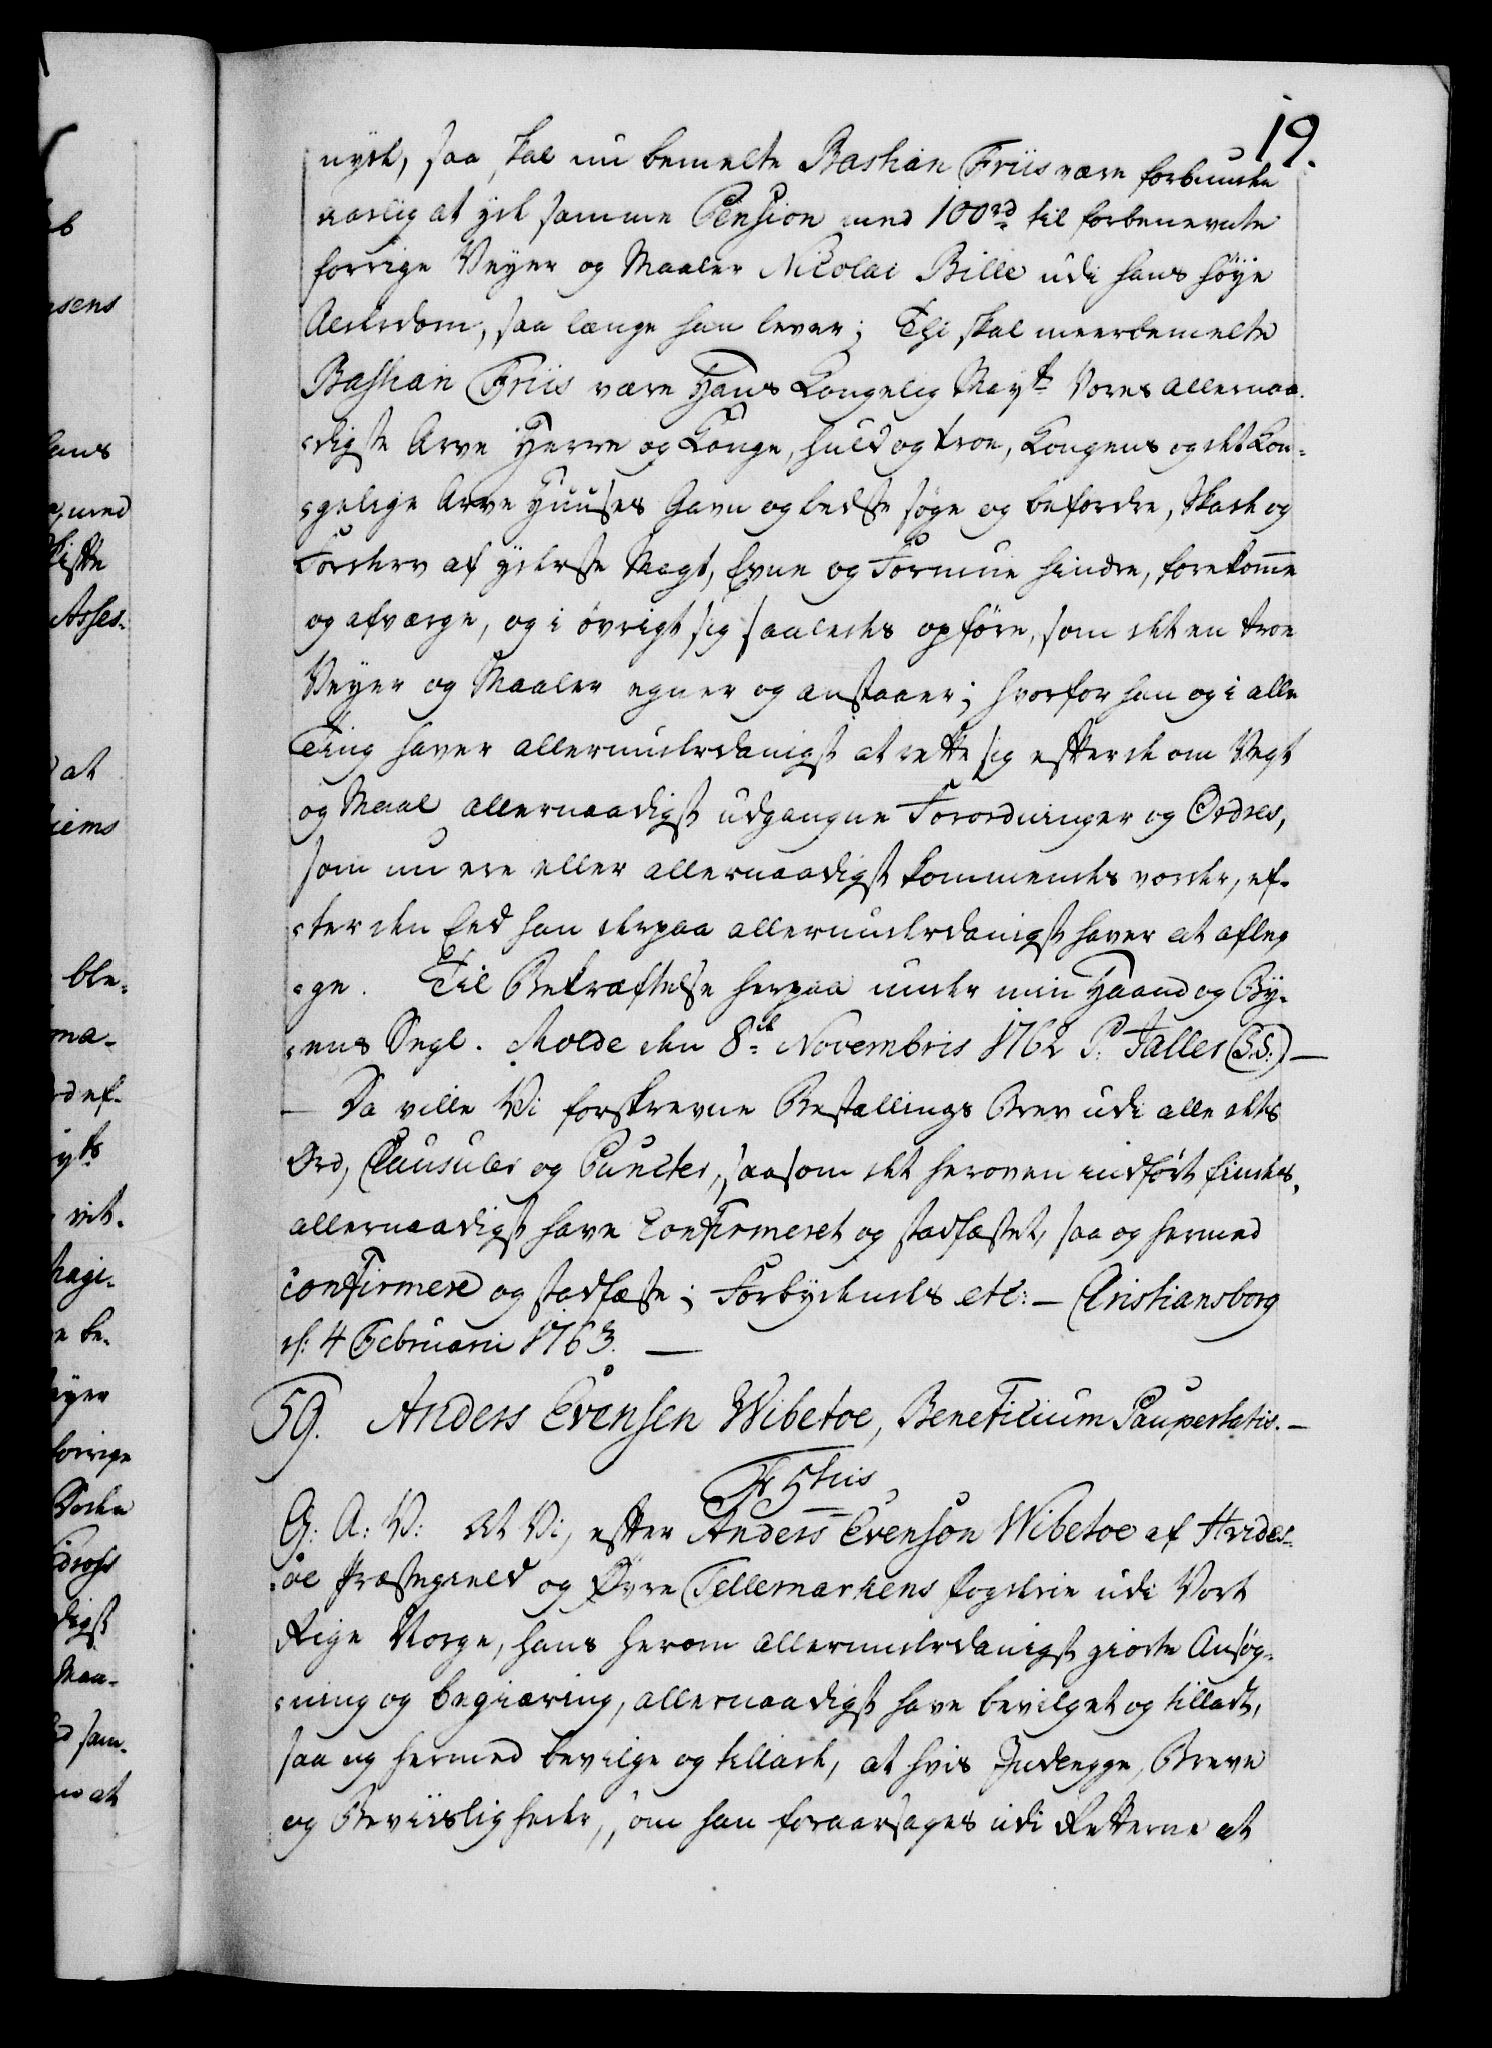 19.
nyde, saa skal nu bemelte Bastian Friis være forbunden
aarlig at yde samme Pension med 100rd til forbenevnte
forrige Veyer og Maaler Nicolai Bille udi hans høye
Alderdom, saa længe han lever; Thi skal meerbemelte
Bastian Friis være Hans Kongelig Mayts Vores allernaa-
-digste Arve Herre og Konge, huld og troe, Kongens og det Kon-
-gelige Arve Huuses Gavn og bedste søge og befordre, Skade og
Forderv af yderste Magt, Evne og Formue hindre, forekomme
og afværge, og i øvrigt sig saaledes opføre, som det en troe
Veyer og Maaler egner og anstaaer; hvorfor han og i alle
Ting haver allerunderdanigst at rette sig efter de om Vegt
og Maal allernaadigst udgangne Forordninger og Ordres,
som nu ere eller allernaadigst kommendes vorder, ef-
-ter den Eed han derpaa allerunderdanigst haver at afleg
-ge. Til Bekræftelse herpaa under min Haand og By-
-ens Segl. Molde den 8de Novembris 1762 P: Faller (L.S.) —
— Da ville Vi forskrevne Bestallings Brev udi alle dets
Ord, Clausuler og Puncter, saasom det heroven indført findes,
allernaadigst have Confirmeret og stadfæstet, saa og hermed
confirmere og stadfæste; Forbydendes etc: — Cristiansborg
d: 4 Februarii 1763. —
59. Anders Evensen Wibetoe, Beneficium Paupertatis. —
Fr 5tus
G: A: V: At Vi, efter Anders Evenson Wibetoe af Hvides-
-öe Præstegield og Øvre Tellemarkens Fogderie udi Vort
Rige Norge, hans herom allerunderdanigst giorte Ansøg-
-ning og begiæring, allernaadigst have bevilget og tilladt,
saa og hermed bevilge og tillade, at hvis Indlegge, Breve
og Beviisligheder, som han foraarsages udi Retterne at